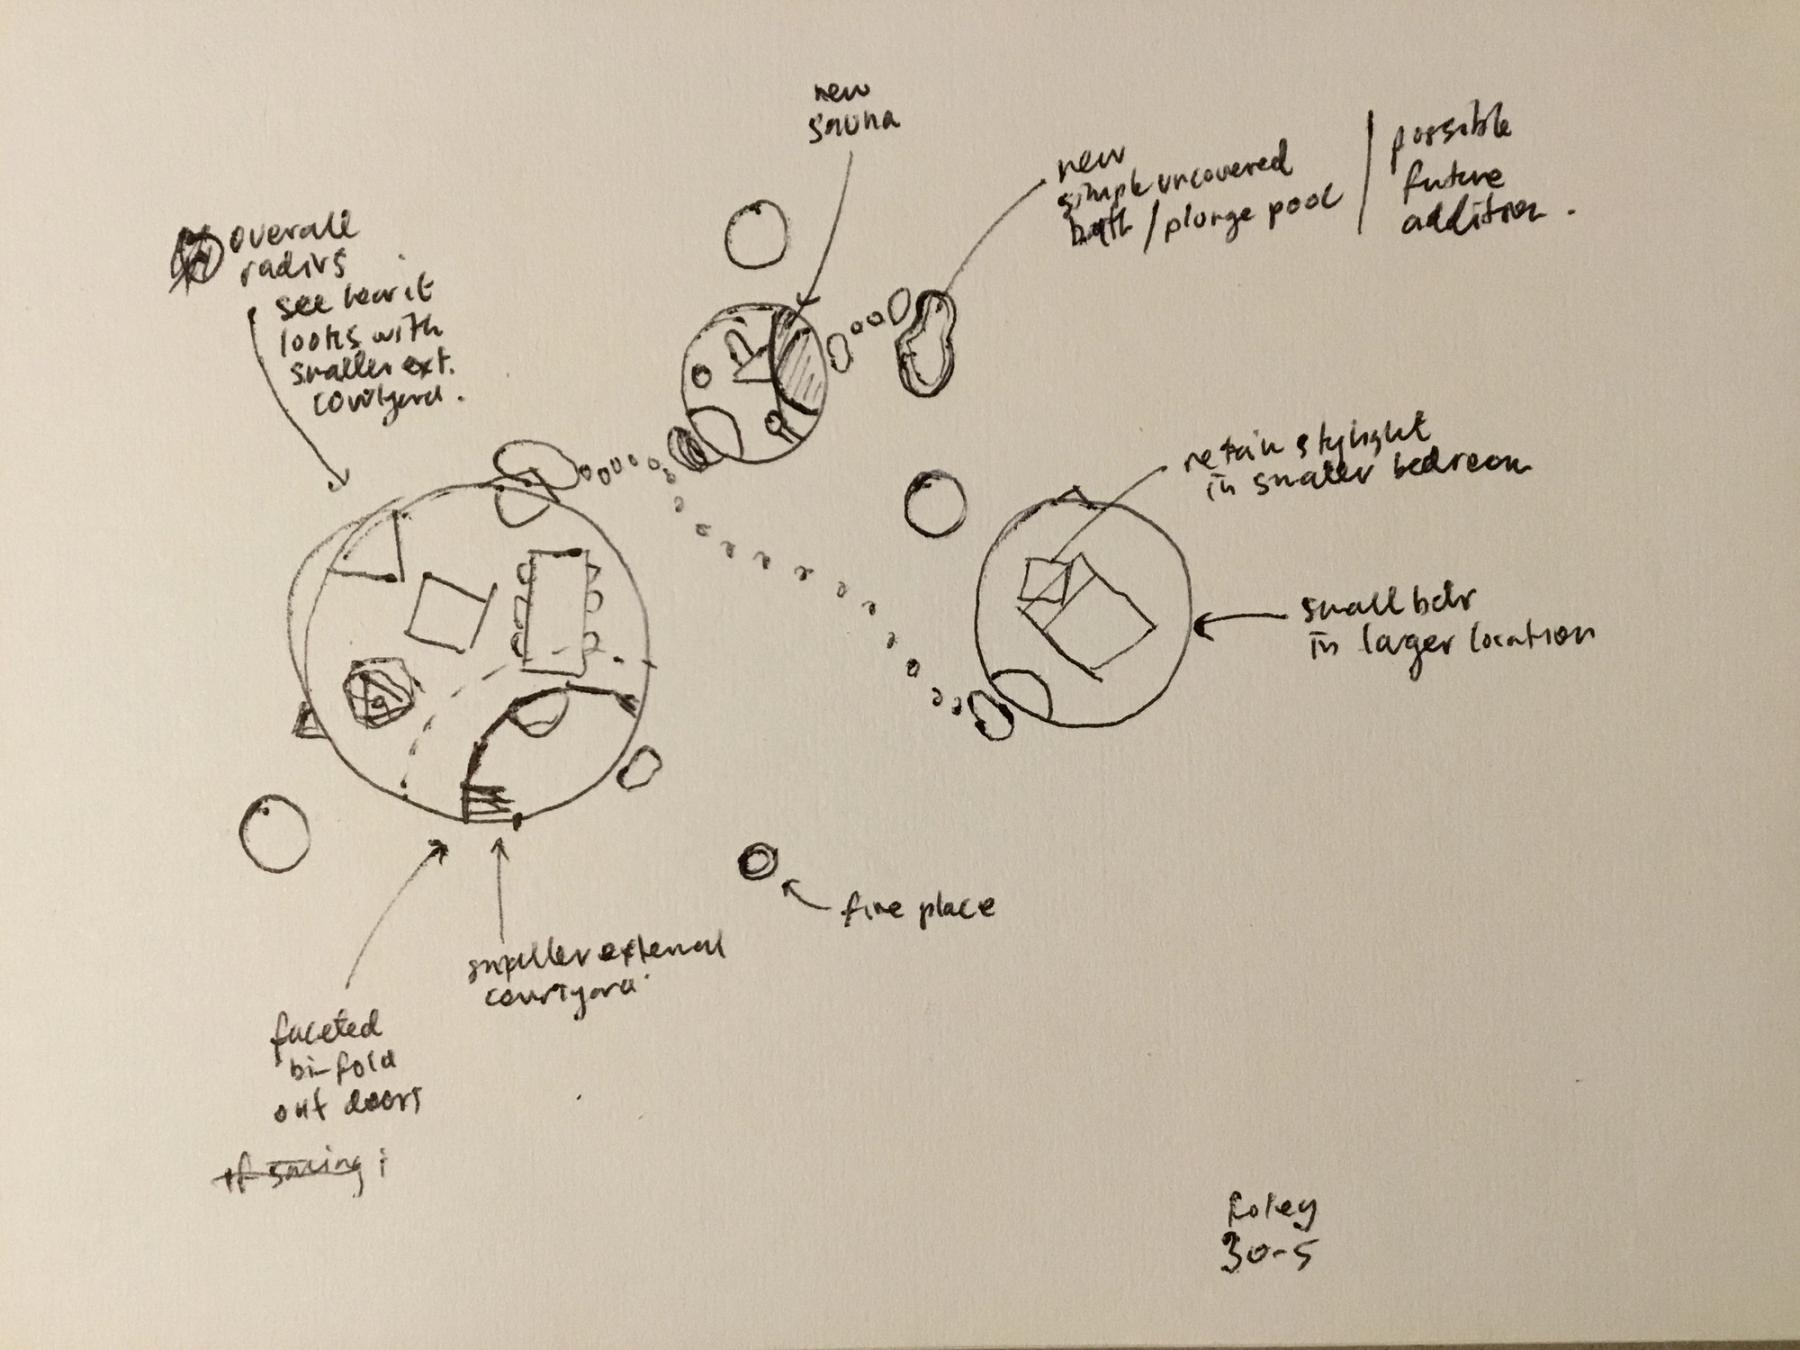 new
sauna
new
simple uncovered
bath / plunge pool
possible
future
addition.
overall
radius
see how it
looks with
smaller ext.
courtyard.
retain skylight
in smaller bedroom
small bdr
in larger location
fire place
smaller external
courtyard.
faceted
bi-fold
out doors
If
Foley
30-5